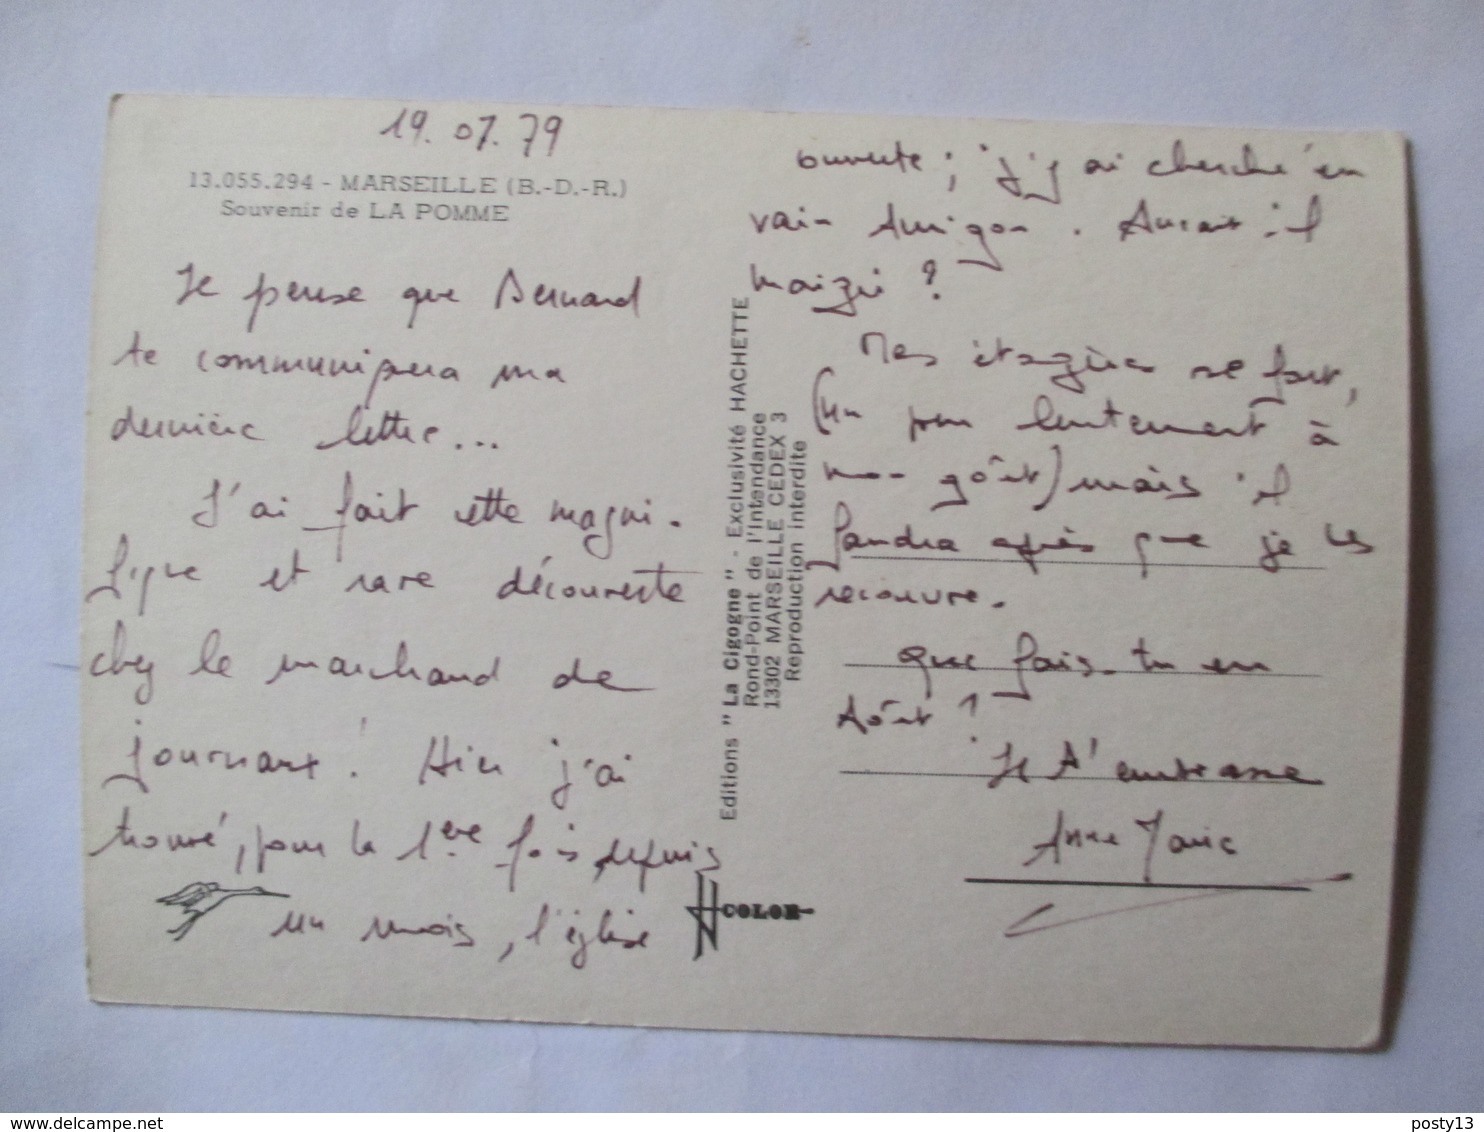 19.07.79
13.055.294 - MARSEILLE (B.-D.-R.)
Souvenir de LA POMME
Je pense que Bernard
te communiquera ma
dernière lettre...
J'ai fait cette magni-
fique et rare découverte
chez le marchand de
journaux ! Hier j'ai
trouvé, pour la 1ère fois depuis
un mois, l'église
Editions "La Cigogne" - Exclusivité HACHETTE
Rond-Point de l'Intendance
13302 MARSEILLE CEDEX 3
Reproduction interdite
COLOR
ouverte ; j'y ai cherché en
vain . Aurait-il
?
Mes étagères se font,
(un peu lentement à
mon goût) mais il
faudra après que je les
recouvre.
Que fais-tu en
Août ?
Je t'embrasse
Anne Marie
posty13